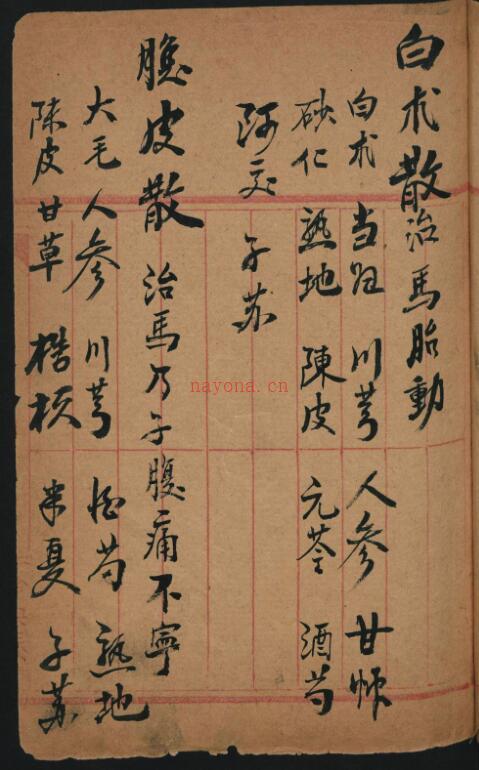 白朮散治馬胎動
白朮 当归 川芎 人参 甘
砂仁 熟地 陳皮 元芩 酒芍
阿交 子苏
皮散 治馬乃子腹痛不寧
大毛 人参 川芎 芍 熟地
陈皮 甘草 半夏 子苏
nayona.cn